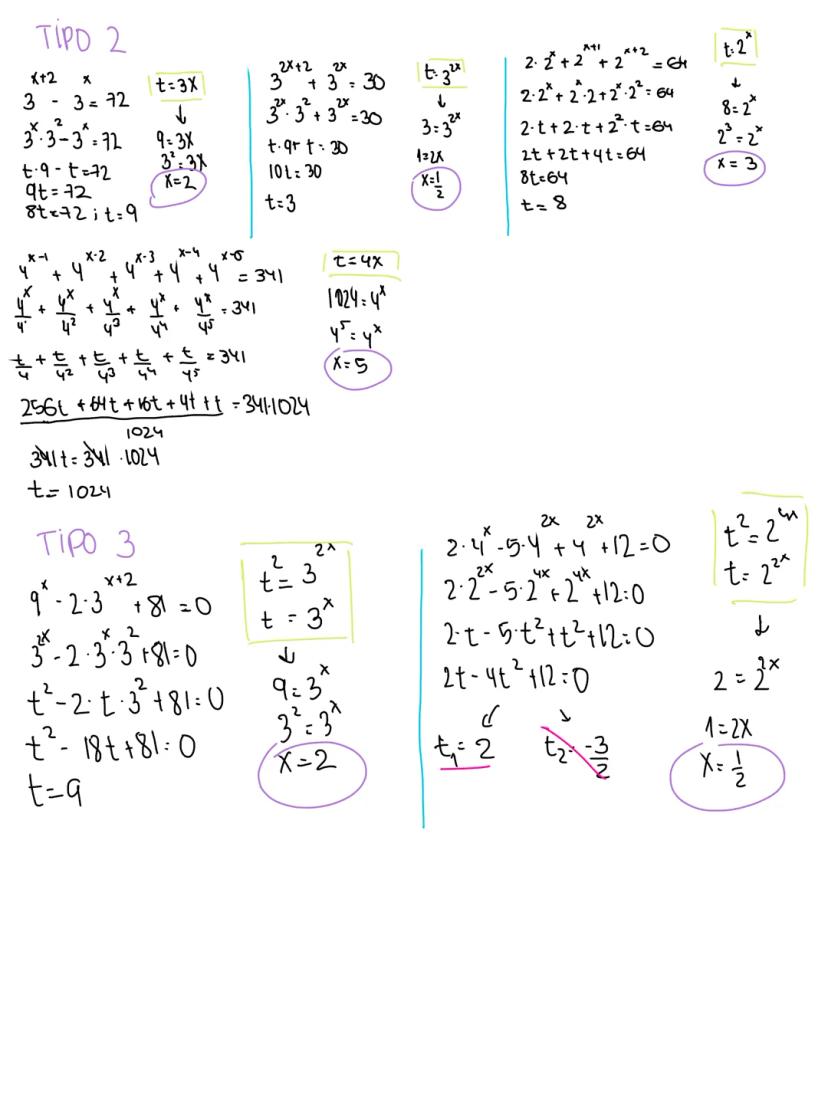 TIPO 2
3^{x+2} - 3^x = 72
3^x · 3^2 - 3^x = 72
t · 9 - t = 72
9t = 72
8t = 72 ; t = 9
t = 3X
↓
9 = 3X
3^2 = 3X
x = 2
3^{2x+2} + 3^{2x} = 30
3^{2x} · 3^2 + 3^{2x} = 30
t · 9 + t = 30
10t = 30
t = 3
t = 3^{2x}
↓
3 = 3^{2x}
1 = 2x
x = 1/2
2 · 2^x + 2^{x+1} + 2^{x+2} = 64
2 · 2^x + 2^x · 2 + 2^x · 2^2 = 64
2 · t + 2 · t + 2^2 · t = 64
2t + 2t + 4t = 64
8t = 64
t = 8
t = 2^x
↓
8 = 2^x
2^3 = 2^x
x = 3
4^{x-1} + 4^{x-2} + 4^{x-3} + 4^{x-4} + 4^{x-5} = 341
4^x/4 + 4^x/4^2 + 4^x/4^3 + 4^x/4^4 + 4^x/4^5 = 341
t/4 + t/4^2 + t/4^3 + t/4^4 + t/4^5 = 341
256t + 64t + 16t + 4t + t = 341·1024
1024
341t = 341 · 1024
t = 1024
t = 4x
1024 = 4^x
4^5 = 4^x
x = 5
TIPO 3
9^x - 2 · 3^{x+2} + 81 = 0
3^{2x} - 2 · 3^x · 3^2 + 81 = 0
t^2 - 2 · t · 3^2 + 81 = 0
t^2 - 18t + 81 = 0
t = 9
t^2 = 3^{2x}
t = 3^x
↓
9 = 3^x
3^2 = 3^x
x = 2
2 · 4^x - 5 · 4^{2x} + 4^{2x} + 12 = 0
2 · 2^{2x} - 5 · 2^{4x} + 2^{4x} + 12 = 0
2 · t - 5 · t^2 + t^2 + 12 = 0
2t - 4t^2 + 12 = 0
↙ ↘
t_1 = 2 t_2 = -3/2
t^2 = 2^{4x}
t = 2^{2x}
↓
2 = 2^{2x}
1 = 2x
x = 1/2